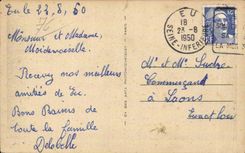 Eu le 23, 8, 50
Monsieur et Madame,
Moidenoiselle.
Recevez nos meilleurs
amitiés de Eu.
Bons Baisers de
toute la famille
Delobelle
EU
18
23-8
1950
SEINE-INFERIEURE
Mr et Me
Commerçant
à Laons
Eure et Loir